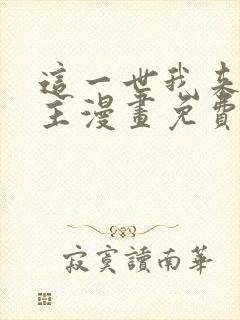 這一世我來
主漫畫免費
寂寞讀南華